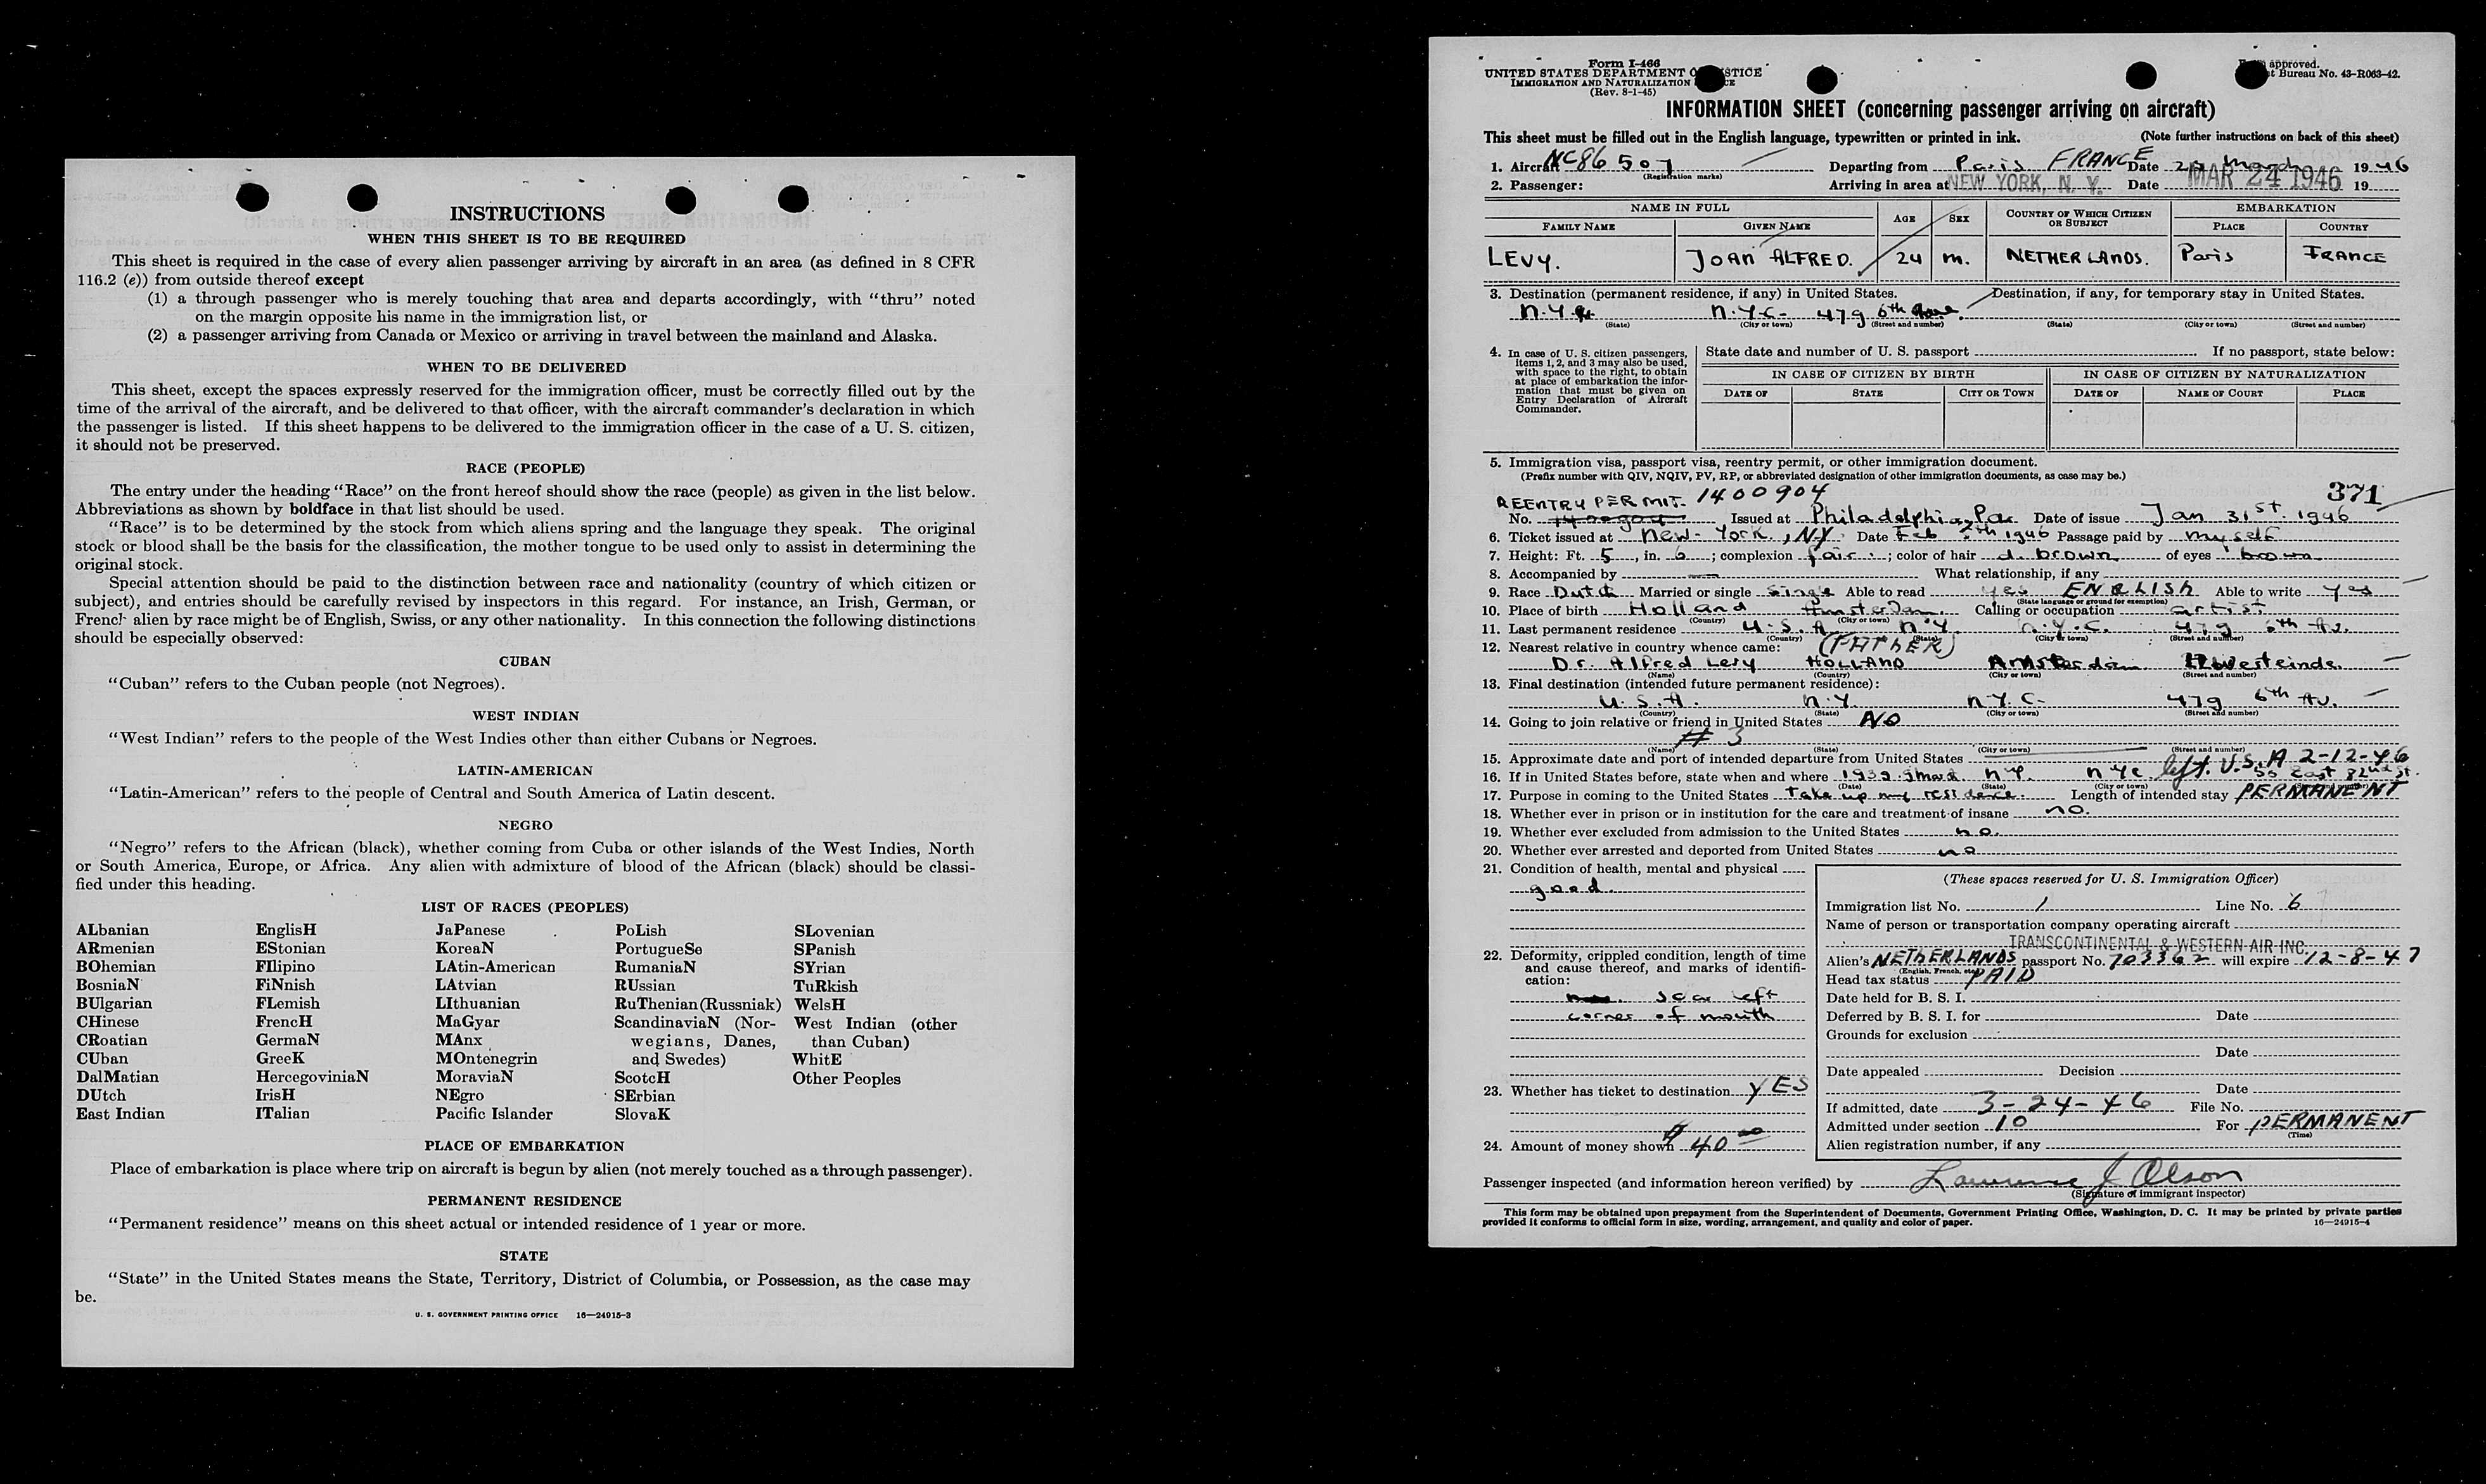 INSTRUCTIONS
WHEN THIS SHEET IS TO BE REQUIRED
This sheet is required in the case of every alien passenger arriving by aircraft in an area (as defined in 8 CFR
116.2 (e)) from outside thereof except
(1) a through passenger who is merely touching that area and departs accordingly, with “thru” noted
on the margin opposite his name in the immigration list, or
(2) a passenger arriving from Canada or Mexico or arriving in travel between the mainland and Alaska.
WHEN TO BE DELIVERED
This sheet, except the spaces expressly reserved for the immigration officer, must be correctly filled out by the
time of the arrival of the aircraft, and be delivered to that officer, with the aircraft commander’s declaration in which
the passenger is listed. If this sheet happens to be delivered to the immigration officer in the case of a U. S. citizen,
it should not be preserved.
RACE (PEOPLE)
The entry under the heading “Race” on the front hereof should show the race (people) as given in the list below.
Abbreviations as shown by boldface in that list should be used.
“Race” is to be determined by the stock from which aliens spring and the language they speak. The original
stock or blood shall be the basis for the classification, the mother tongue to be used only to assist in determining the
original stock.
Special attention should be paid to the distinction between race and nationality (country of which citizen or
subject), and entries should be carefully revised by inspectors in this regard. For instance, an Irish, German, or
French alien by race might be of English, Swiss, or any other nationality. In this connection the following distinctions
should be especially observed:
CUBAN
“Cuban” refers to the Cuban people (not Negroes).
WEST INDIAN
“West Indian” refers to the people of the West Indies other than either Cubans or Negroes.
LATIN-AMERICAN
“Latin-American” refers to the people of Central and South America of Latin descent.
NEGRO
“Negro” refers to the African (black), whether coming from Cuba or other islands of the West Indies, North
or South America, Europe, or Africa. Any alien with admixture of blood of the African (black) should be classi-
fied under this heading.
LIST OF RACES (PEOPLES)
ALbanian EnglisH JaPanese PoLish SLovenian
ARmenian EStonian KoreaN PortugueSe SPanish
BOhemian FIlipino LAtin-American RumaniaN SYrian
BosniaN FiNnish LAtvian RUssian TuRkish
BUlgarian FLemish LIthuanian RuThenian (Russniak) WelsH
CHinese FrencH MaGyar ScandinaviaN (Nor- West Indian (other
CRoatian GermaN MAnx wegians, Danes, than Cuban)
CUban GreeK MOntenegrin and Swedes) WhitE
DalMatian HercegoviniaN MoraviaN ScotcH Other Peoples
DUtch IrisH NEgro SErbian
East Indian ITalian Pacific Islander SlovaK
PLACE OF EMBARKATION
Place of embarkation is place where trip on aircraft is begun by alien (not merely touched as a through passenger).
PERMANENT RESIDENCE
“Permanent residence” means on this sheet actual or intended residence of 1 year or more.
STATE
“State” in the United States means the State, Territory, District of Columbia, or Possession, as the case may
be.
U. S. GOVERNMENT PRINTING OFFICE 16—24915-3
Form I-466
UNITED STATES DEPARTMENT OF JUSTICE
IMMIGRATION AND NATURALIZATION
(Rev. 8-1-45)
approved.
Bureau No. 43-R063-42.
INFORMATION SHEET (concerning passenger arriving on aircraft)
This sheet must be filled out in the English language, typewritten or printed in ink. (Note further instructions on back of this sheet)
1. Aircraft NC86507 Departing from Paris FRANCE Date March 1946
(Registration marks)
2. Passenger: Arriving in area at NEW YORK, N. Y. Date MAR 24 1946 19
NAME IN FULL AGE SEX COUNTRY OF WHICH CITIZEN OR SUBJECT EMBARKATION
FAMILY NAME GIVEN NAME PLACE COUNTRY
LEVY. JOAN ALFRED. 24 m. NETHERLANDS. Paris FRANCE
3. Destination (permanent residence, if any) in United States. Destination, if any, for temporary stay in United States.
N.Y. N.Y.C. 479 6th Ave.
(State) (City or town) (Street and number) (State) (City or town) (Street and number)
4. In case of U. S. citizen passengers, items 1, 2, and 3 may also be used, with space to the right, to obtain at place of embarkation the infor-mation that must be given on Entry Declaration of Aircraft Commander.
State date and number of U. S. passport If no passport, state below:
IN CASE OF CITIZEN BY BIRTH IN CASE OF CITIZEN BY NATURALIZATION
DATE OF STATE CITY OR TOWN DATE OF NAME OF COURT PLACE
5. Immigration visa, passport visa, reentry permit, or other immigration document.
(Prefix number with QIV, NQIV, PV, RP, or abbreviated designation of other immigration documents, as case may be.)
REENTRY PERMIT. 1400904 371
No. Issued at Philadelphia, Pa. Date of issue Jan 31st. 1946
6. Ticket issued at New-York., N.Y. Date Feb 1946 Passage paid by myself
7. Height: Ft. 5, in. 6; complexion fair; color of hair d. brown of eyes brown
8. Accompanied by — What relationship, if any
9. Race Dutch Married or single single Able to read yes ENGLISH Able to write yes
(State language or ground for exemption)
10. Place of birth Holland Amsterdam. Calling or occupation artist.
(Country) (City or town)
11. Last permanent residence U.S.A N.Y. N.Y.C. 479 6th Av.
(Country) (State) (City or town) (Street and number)
12. Nearest relative in country whence came: (FATHER)
Dr. Alfred Levy HOLLAND Amsterdam
(Name) (Country) (City or town) (Street and number)
13. Final destination (intended future permanent residence):
U.S.A. N.Y. N.Y.C. 479 6th Av.
(Country) (State) (City or town) (Street and number)
14. Going to join relative or friend in United States NO
# 3
(Name) (State) (City or town) (Street and number)
15. Approximate date and port of intended departure from United States left U.S.A 2-12-46
16. If in United States before, state when and where 1939 N.Y. NYC 55 East 82nd st.
(Date) (State) (City or town)
17. Purpose in coming to the United States Take up my residence. Length of intended stay PERMANENT
18. Whether ever in prison or in institution for the care and treatment of insane no.
19. Whether ever excluded from admission to the United States no.
20. Whether ever arrested and deported from United States no
21. Condition of health, mental and physical
good.
22. Deformity, crippled condition, length of time
and cause thereof, and marks of identifi-
cation:
scar left
corner of mouth
23. Whether has ticket to destination YES
24. Amount of money shown $ 40 00
(These spaces reserved for U. S. Immigration Officer)
Immigration list No. 1 Line No. 6
Name of person or transportation company operating aircraft
TRANSCONTINENTAL & WESTERN AIR INC.
Alien’s NETHERLANDS passport No. 703362 will expire 12-8-47
(English, French, etc.)
Head tax status PAID
Date held for B. S. I.
Deferred by B. S. I. for Date
Grounds for exclusion
Date
Date appealed Decision
Date
If admitted, date 3-24-46 File No.
Admitted under section 10 For PERMANENT
(Time)
Alien registration number, if any
Passenger inspected (and information hereon verified) by Lawrence J Olson
(Signature of immigrant inspector)
This form may be obtained upon prepayment from the Superintendent of Documents, Government Printing Office, Washington, D. C. It may be printed by private parties
provided it conforms to official form in size, wording, arrangement, and quality and color of paper. 16—24915-4